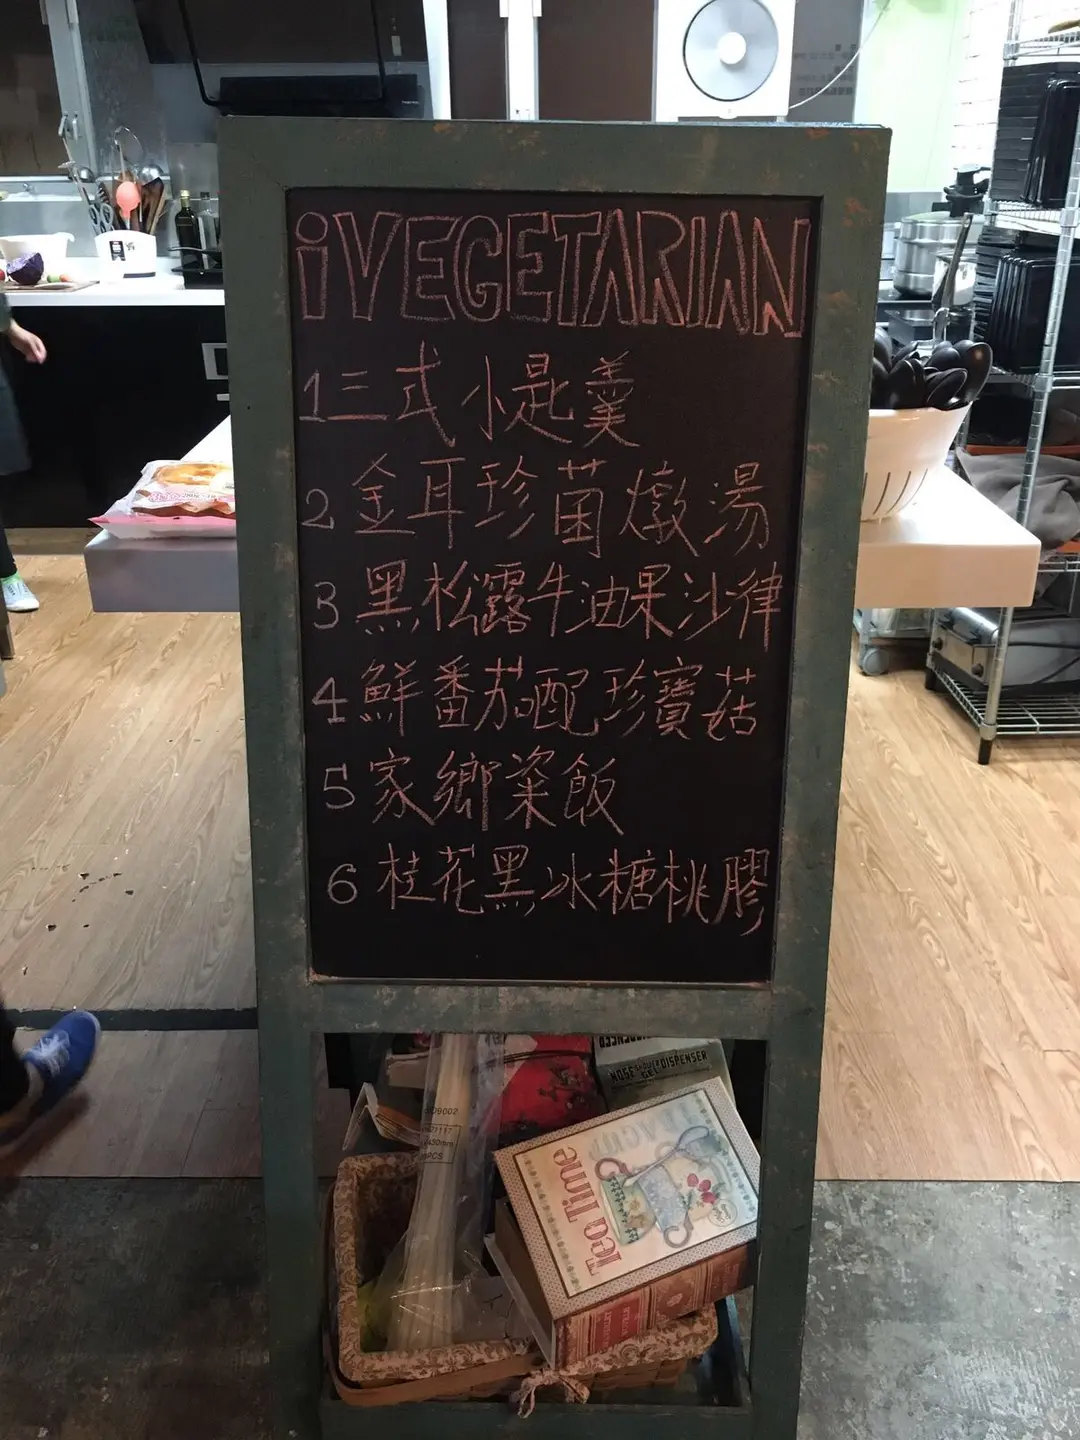 iVEGETARIAN
1 三式小匙羹
2 金耳珍菌燉湯
3 黑松露牛油果沙律
4 鮮番茄配珍寶菇
5 家鄉粢飯
6 桂花黑冰糖桃膠
NOSE SHOULD GEL DISPENSER
Tea Time